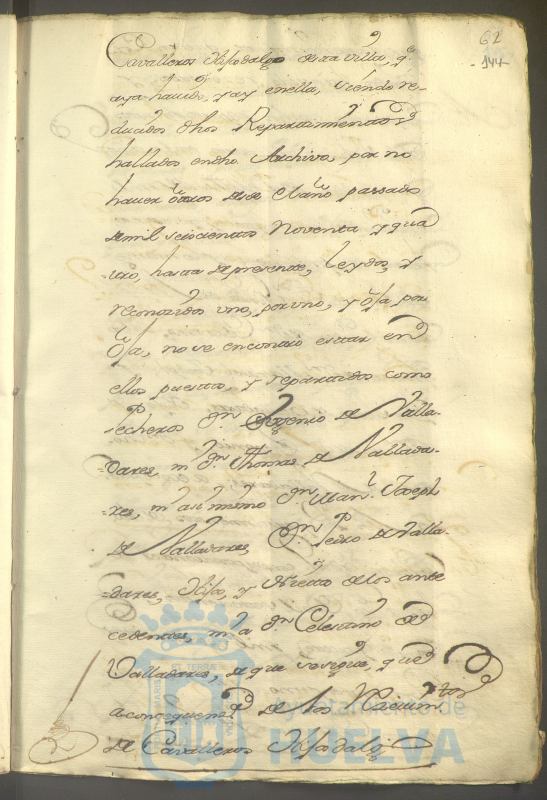 62
144
Cavalleros Hijosdalgo desta villa, q.e
aya havido, y ay en ella, siendo re-
ducidos dhos Repartimientos
hallados en dho Archivo, por no
haver otros desde el año passado
de mil seiscientos Noventa y qua
tro, hasta de presente, leydos, y
reconozidos uno, por uno, y oja, por
oja, no se encontró estar en
ellos puestos, y repartidos como
Pecheros dn. Eugenio de Valla-
dares, ni dn. Thomas de Vallada-
res, ni asimismo dn. Man.l Joseph
de Valladares, dn. Pedro de Valla-
dares, Hijo, y Nieto de los ante
cedentes, ni a dn. Celestino de
Valladares, de que se sigue, que
a consequen.a de los Nacim.tos
de Cavalleros Hijosdalgo
Ayuntamiento de
HUELVA